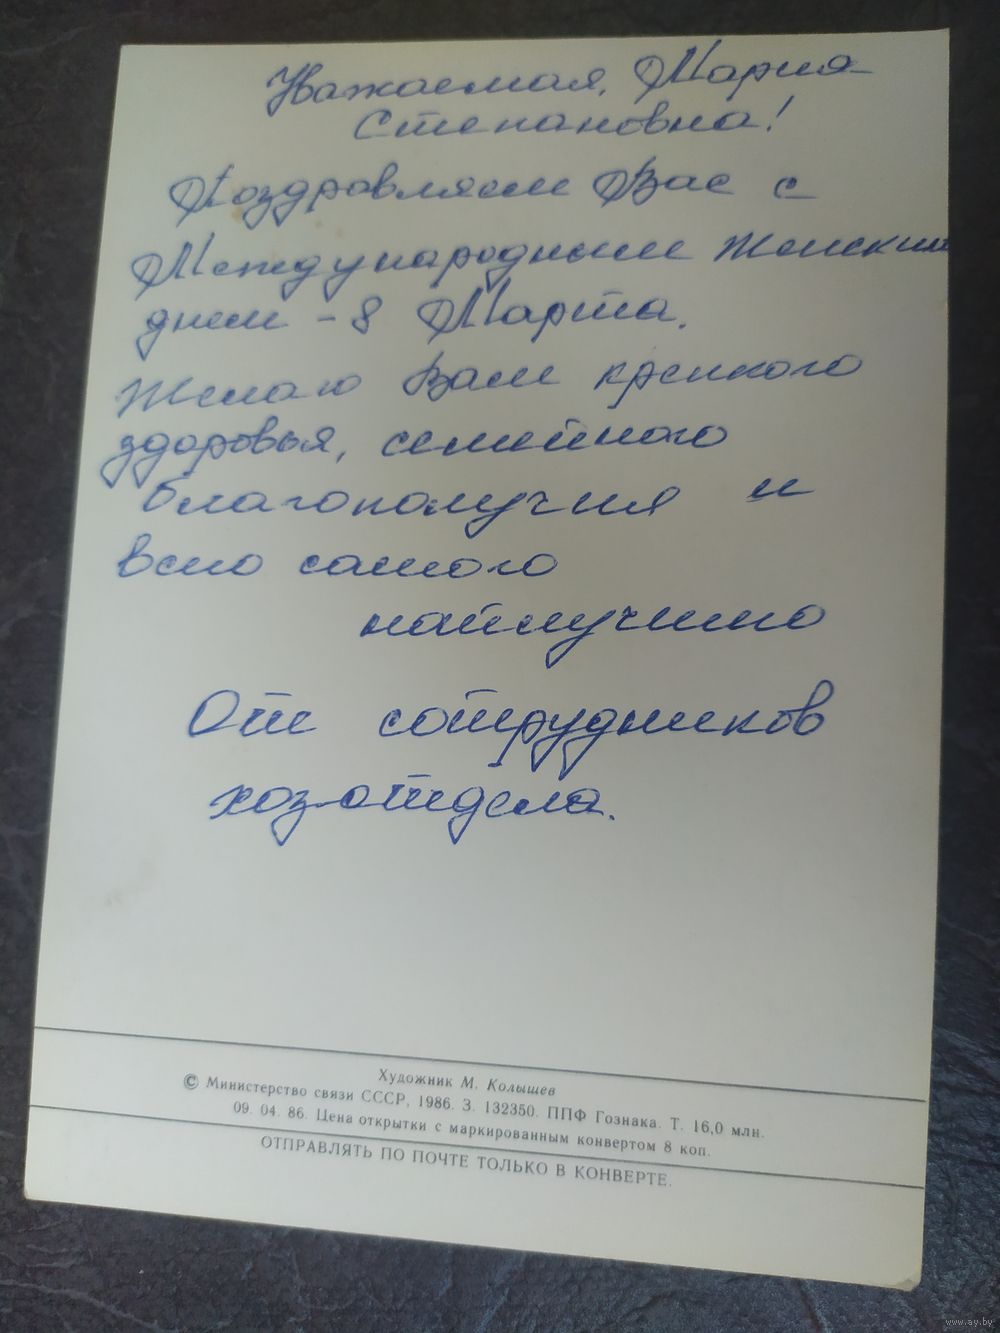 Уважаемая, Мария
Степановна!
Поздравляем Вас с
Международным Женским
днем - 8 Марта.
Желаю Вам крепкого
здоровья, семейного
благополучия и
всно самого
найлучшно
От сотрудников
хоз-отдела.
Художник М. Колышев
© Министерство связи СССР, 1986. З. 132350. ППФ Гознака. Т. 16,0 млн.
09. 04. 86. Цена открытки с маркированным конвертом 8 коп.
ОТПРАВЛЯТЬ ПО ПОЧТЕ ТОЛЬКО В КОНВЕРТЕ.
www.ay.by